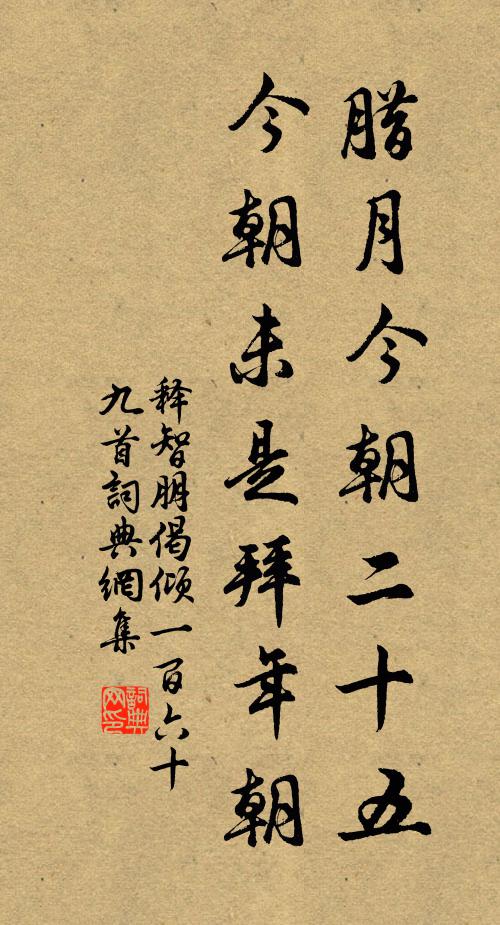 腊月今朝二十五
今朝未是拜年朝
释智朋偈倾一百六十
九首詞典網集
詞典
网印